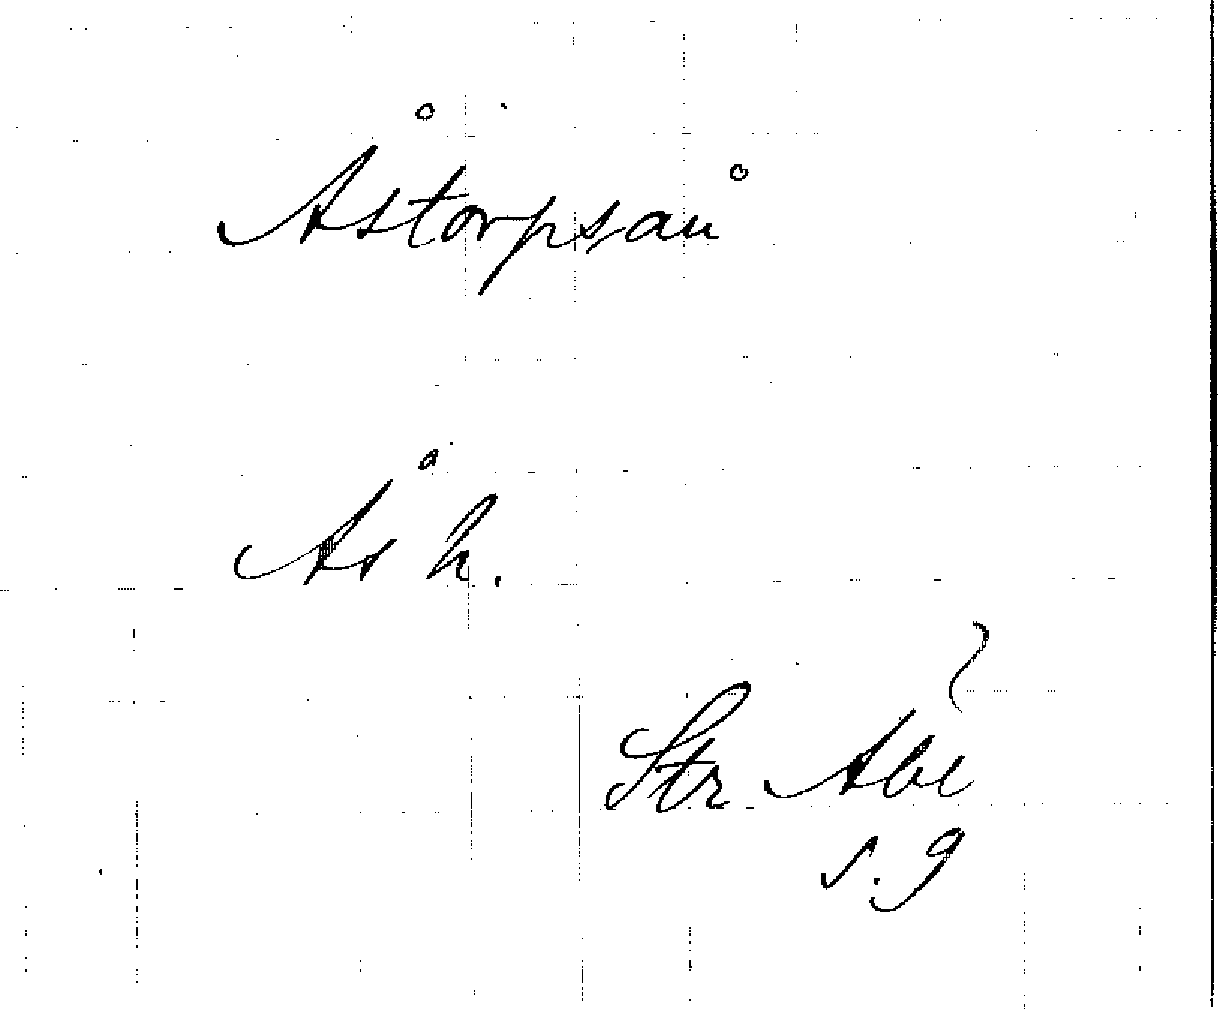 Åstorpsån
Ås h.
Str Abl
s. 9